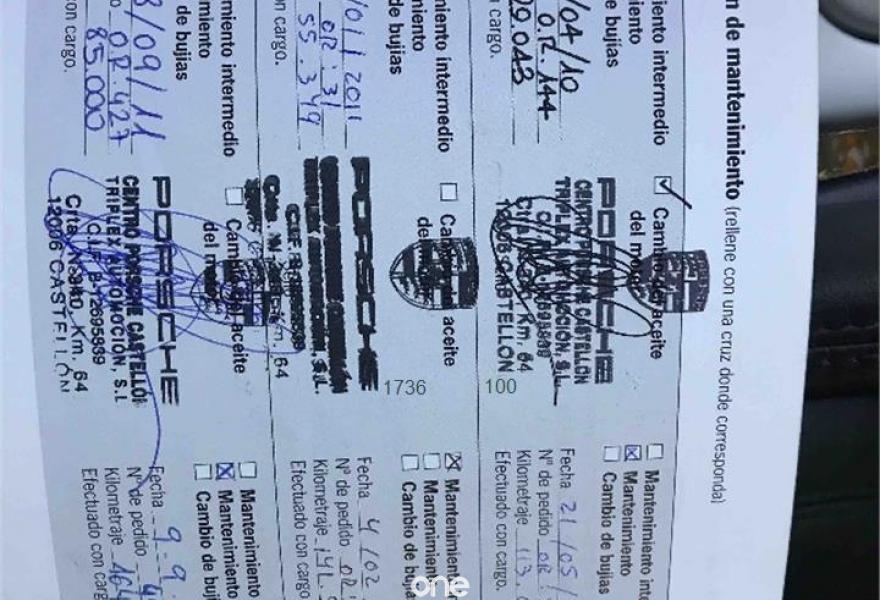 n de mantenimiento (rellene con una cruz donde corresponda)
miento intermedio
miento
de bujías
/04/10
O.R. 144
29.048
n cargo.
Cambio del aceite
del motor
PORSCHE
CENTRO PORSCHE CASTELLÓN
TRIPLEX AUTOMOCIÓN, S.L.
Km. 64
12006 CASTELLÓN
100
Mantenimiento inte
Mantenimiento
Cambio de bujías
Fecha 21/05/
Nº de pedido OR
Kilometraje 113.
Efectuado con cargo
miento intermedio
imiento
de bujías
/01/2011
OR: 31
55.349
n cargo.
Cambio del aceite
del
PORSCHE
Km. 64
1736
Mantenimiento
Mantenimiento
Cambio de bujías
Fecha 4/02
Nº de pedido OR
Kilometraje 141.
Efectuado con cargo
miento intermedio
imiento
de bujías
8/09/11
O.R. 427
85.000
con cargo.
Cambio del aceite
del
PORSCHE
CENTRO PORSCHE CASTELLÓN
TRIPLEX AUTOMOCIÓN, S.L
C.I.F. B-12695839
Crta. N-340, Km. 64
12006 CASTELLÓN
Mantenimiento
Mantenimiento
Cambio de bují
Fecha 9-9-
Nº de pedido
Kilometraje 164
Efectuado con carg
one